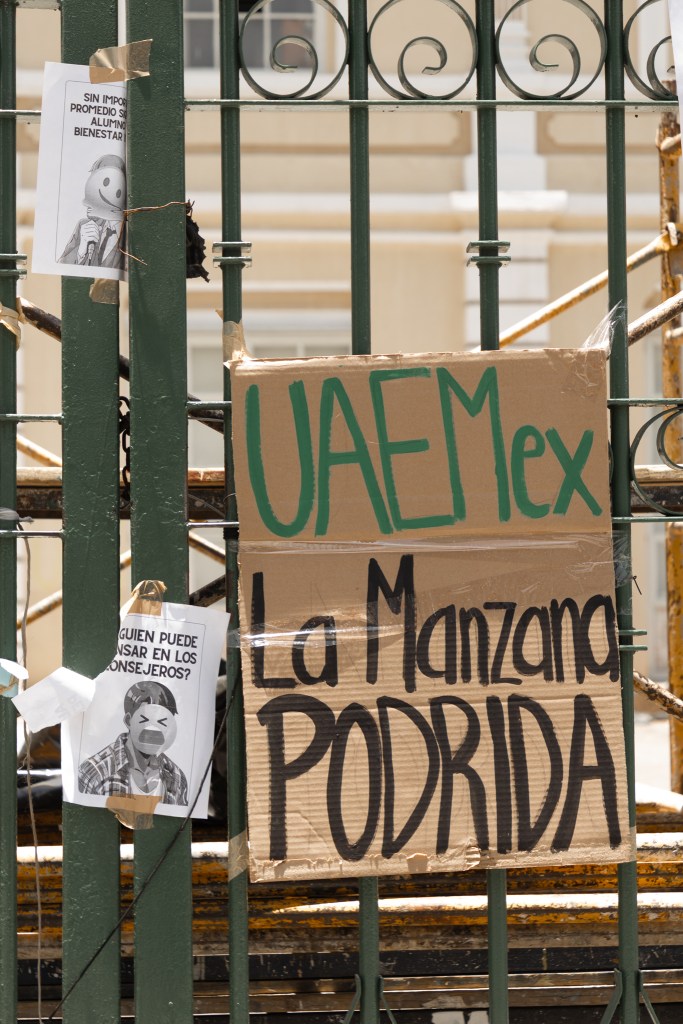 SIN IMPOR
PROMEDIO S
ALUMNO
BIENESTAR
UAEMex
La Manzana
PODRIDA
GUIEN PUEDE
NSAR EN LOS
ONSEJEROS?